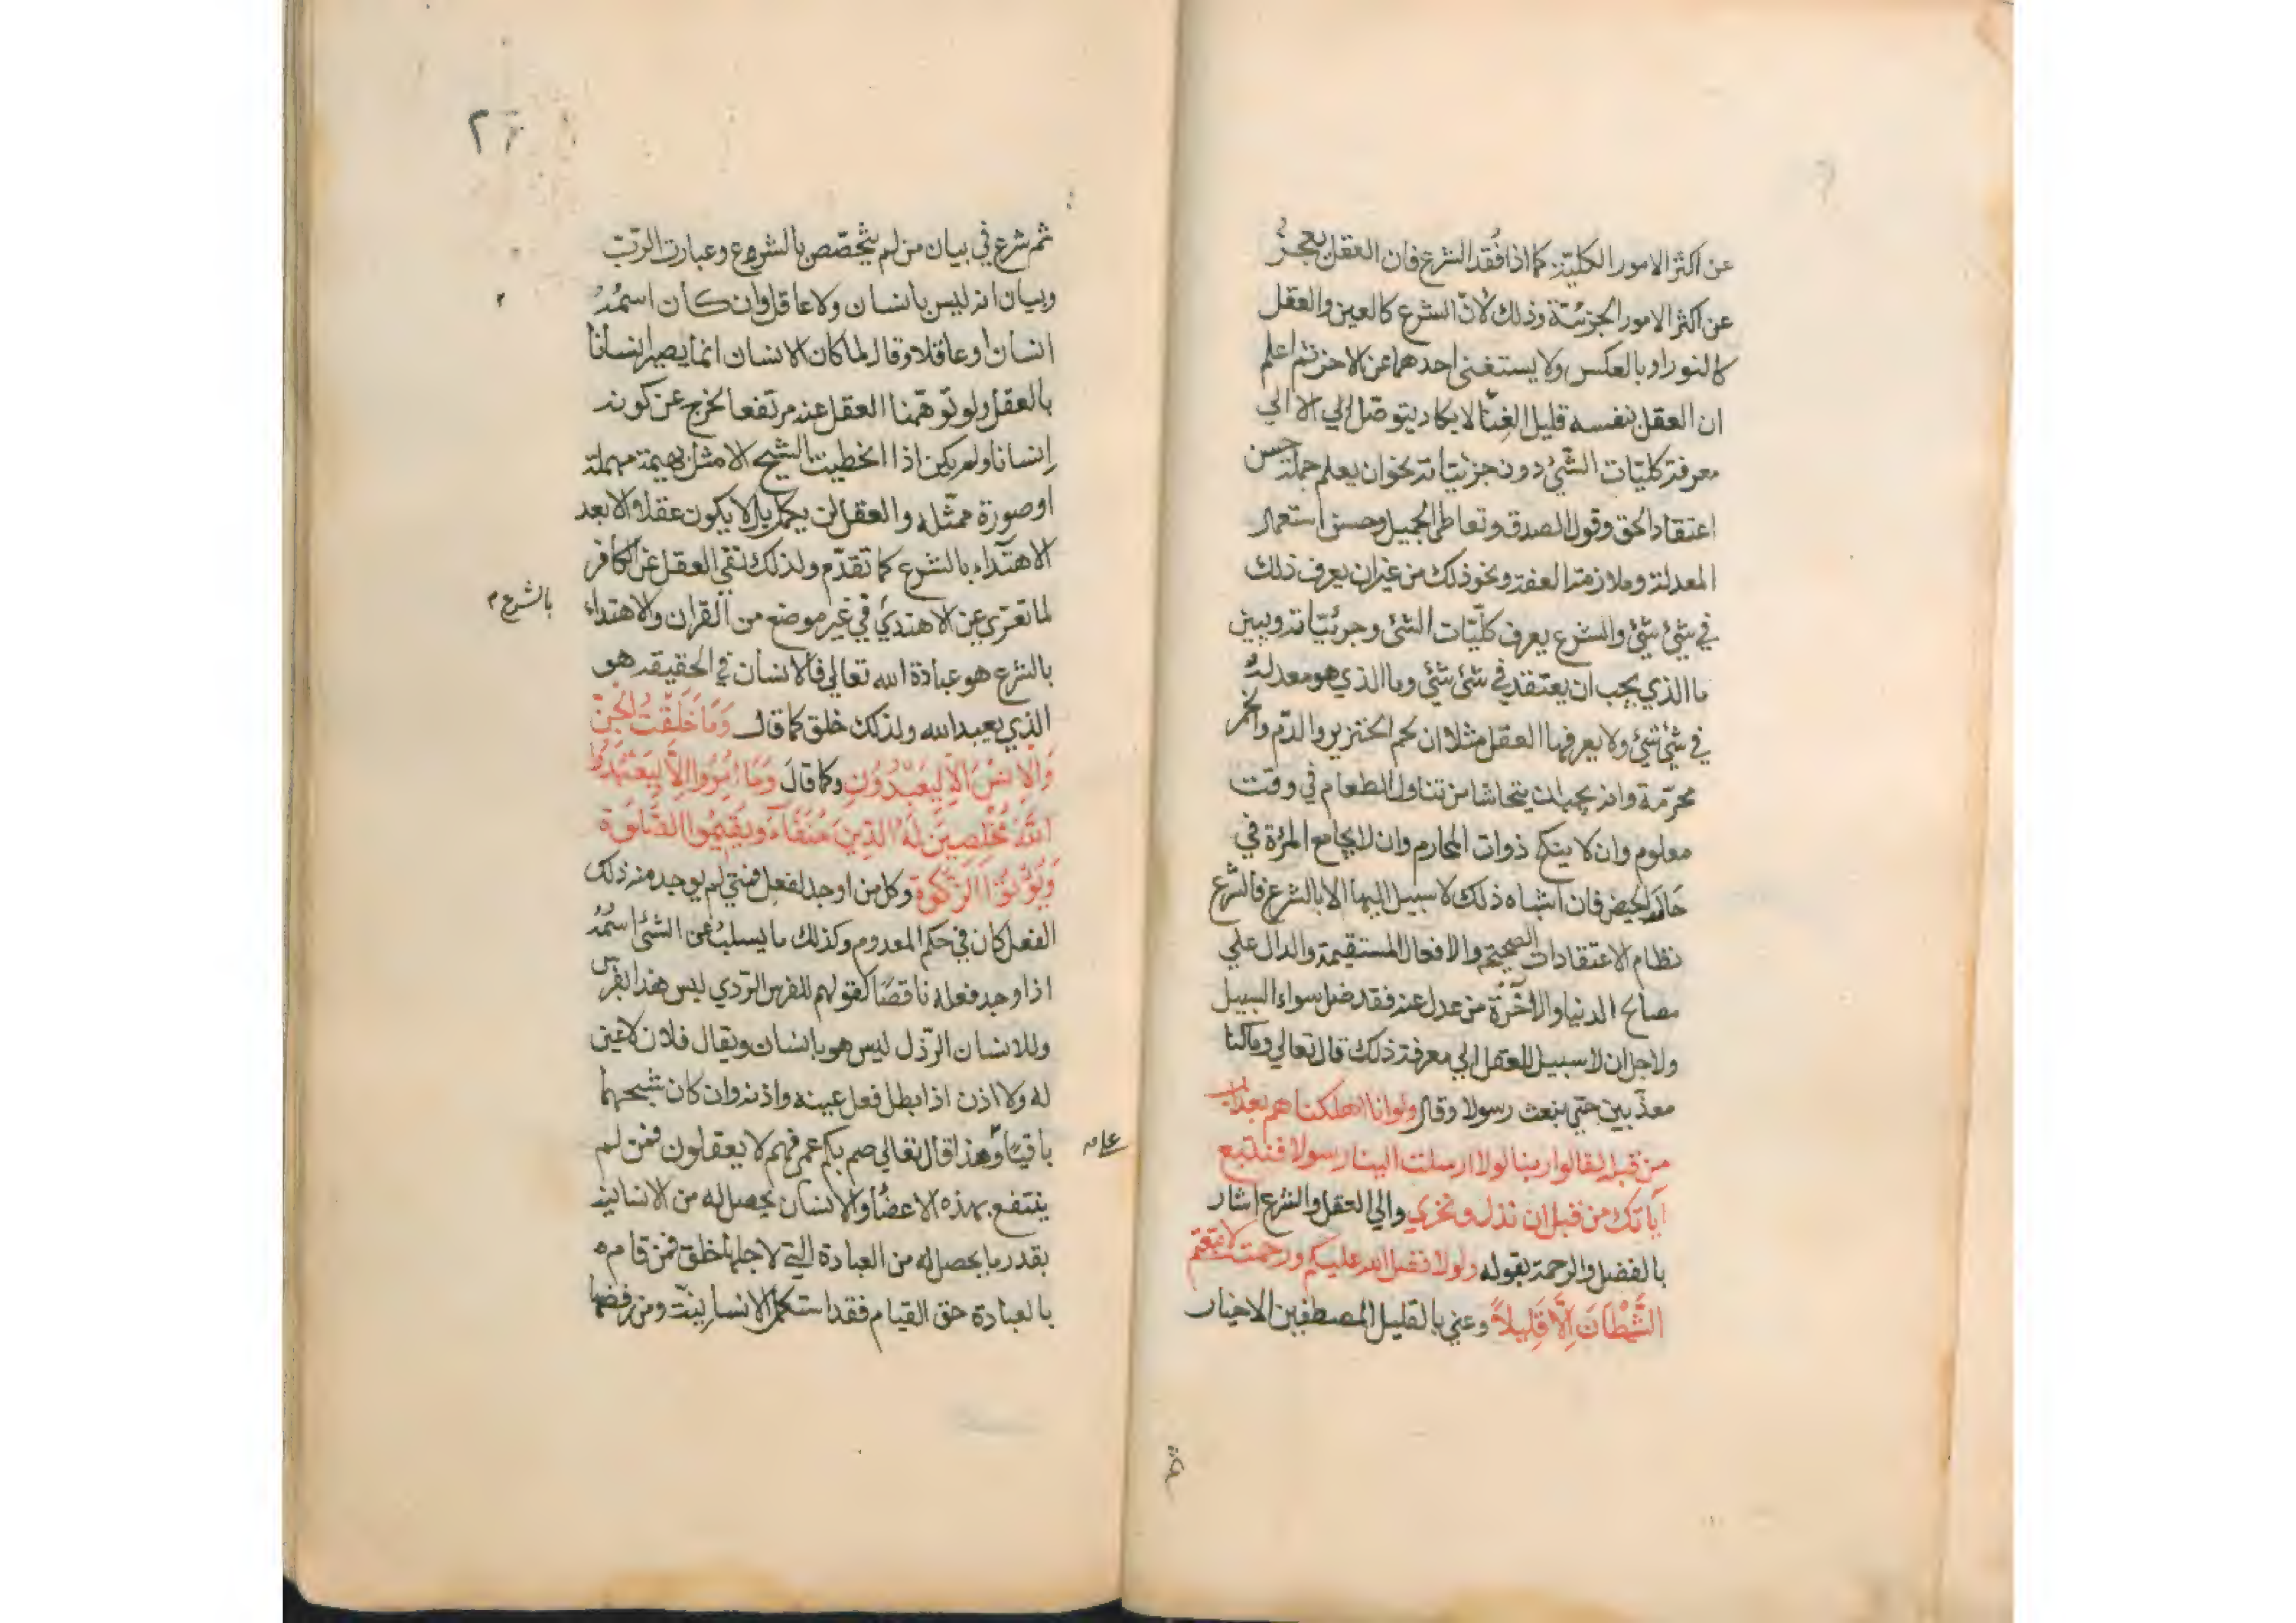 عن اكثر الامور الكلية كما اذا فُقد الشرع فان العقل يعجزُ
عن اكثر الامور الجزئية وذلك لانّ الشرع كالعين والعقل
كالنور او بالعكس ولا يستغنى احدهما عن الاخر ثم اعلم
ان العقل بنفسه قليل الغِنا لا يكاد يتوصّل الي الا الي
معرفة كليّات الشئ دون جزئياته نحو ان يعلم جملة حسن
اعتقاد الحق وقول الصدق وتعاطي الجميل وحسن استعمال
المعدلة وملازمة العفة ونحو ذلك من غير ان يعرف ذلك
في شئ شئ والشرع يعرف كلّيات الشئ وجرئيّاته ويبين
ما الذي يجب ان يعتقد في شئ شئي وما الذي هو معدلة
في شئ شئ ولا يعرفها العقل مثلا ان لحم الخنزير والدّم والخمر
محرّمة وانه يجب ان يتحاشا من تناول الطعام في وقت
معلوم وان لا ينكح ذوات المحارم وان لا يجامع المرٔة في
حالة الحيض فان اشباه ذلك لا سبيل اليها الا بالشرع فالشرع
نظام الاعتقادات الصحيحة والافعال المستقيمة والدال علي
مصالح الدنيا والاخرة من عدل عنه فقد ضل سواء السبيل
ولاجل ان لا سبيل للعقل الي معرفة ذلك قال تعالي وما كنا
معذّبين حتي نبعث رسولا وقال ولو انا اهلكناهم بعذاب
من قبله لقالوا ربنا لولا ارسلت الينا رسولا فنتبع
اياتك من قبل ان نذل ونخزي والي العقل والشرع اشار
بالفضل والرحمة بقوله ولولا فضل الله عليكم ورحمته لاتبعتم
الشَّيْطَانَ اِلَّا قَلِيلاً وعني بالقليل المصطفين الاخيار
ثم شرع في بيان من لم يتخصّص بالشروع وعبارة الربّ
وبيان انه ليس بانسان ولا عاقل وان كان اسمُهُ
انسانا وعاقلا وقال لما كان الانسان انما يصير انسانا
بالعقل ولو توهّمنا العقل عنه مرتفعا لخرج عن كونه
اِنسانا ولم يكن اذا الخطيت الشيح الا مثل بهيمة مهملة
او صورة ممثّله والعقل لن يكمل بل لا يكون عقلا الا بعد
الاهتداء بالشرع كما تقدّم ولذلك نفي العقل عن الكافر
لما تعزي عن الاهتدي في غير موضع من القران والاهتداء
بالشرع م
بالشرع هو عبادة الله تعالي فالانسان في الحقيقه هو
الذي يعبد الله ولذلك خلق كما قال وَمَا خَلَقْتُ الْجِنَّ
وَالْاِنْسَ اِلَّا لِيَعْبُدُوْنِ وكما قالَ وَمَا اُمِرُوا اِلَّا لِيَعْبُدُوا
اللّٰهَ مُخْلِصِيْنَ لَهُ الدِّينَ حُنَفَآءَ وَيُقِيْمُوا الصَّلوٰةَ
وَيُؤْتُوا الزَّكٰوةَ وكل من اوجد لفعل فمتي لم يوجد منه ذلك
الفعل كان في حكم المعدوم وكذلك ما يسلبُ عن الشئ اسمُهُ
اذا وجد فعله ناقصًا كقولهم للفرس الرّدي ليس هذا بفرس
وللانسان الرّذل ليس هو بانسان ويقال فلان لا عين
له ولا اذن اذا بطل فعل عينه واذنه وان كان شبحهما
باقيًا وهذا قال تعالي صم بكم عمي فهم لا يعقلون فمن لم
ينتفع بهذه الاعضاء والانسان يحصل له من الانسانية
بقدر ما يحصل له من العبادة التي لاجلها خلق فمن قام
بالعبادة حق القيام فقد استكمل الانسانيّت ومن رفضها